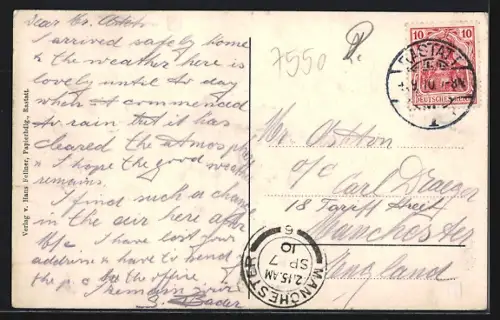 Dear Mr. Ashton
I arrived safely home
& the weather here is
lovely until to day
when it commenced
to rain but it has
cleared the atmosphere
& I hope the good weather
remains.
I find such a change
in the air here after
M/c. I have lost your
address & have to send
the p.c. to the office
I remain
Bader
Verlag v. Hans Fellner, Papierhdlg., Rastatt.
7550
10 10
DEUTSCHES REICH
RASTATT
Mr. Ashton
c/o Carl Draeger
18 Tariff Street
Manchester
England
MANCHESTER
2.15 AM
SP 7
10
6